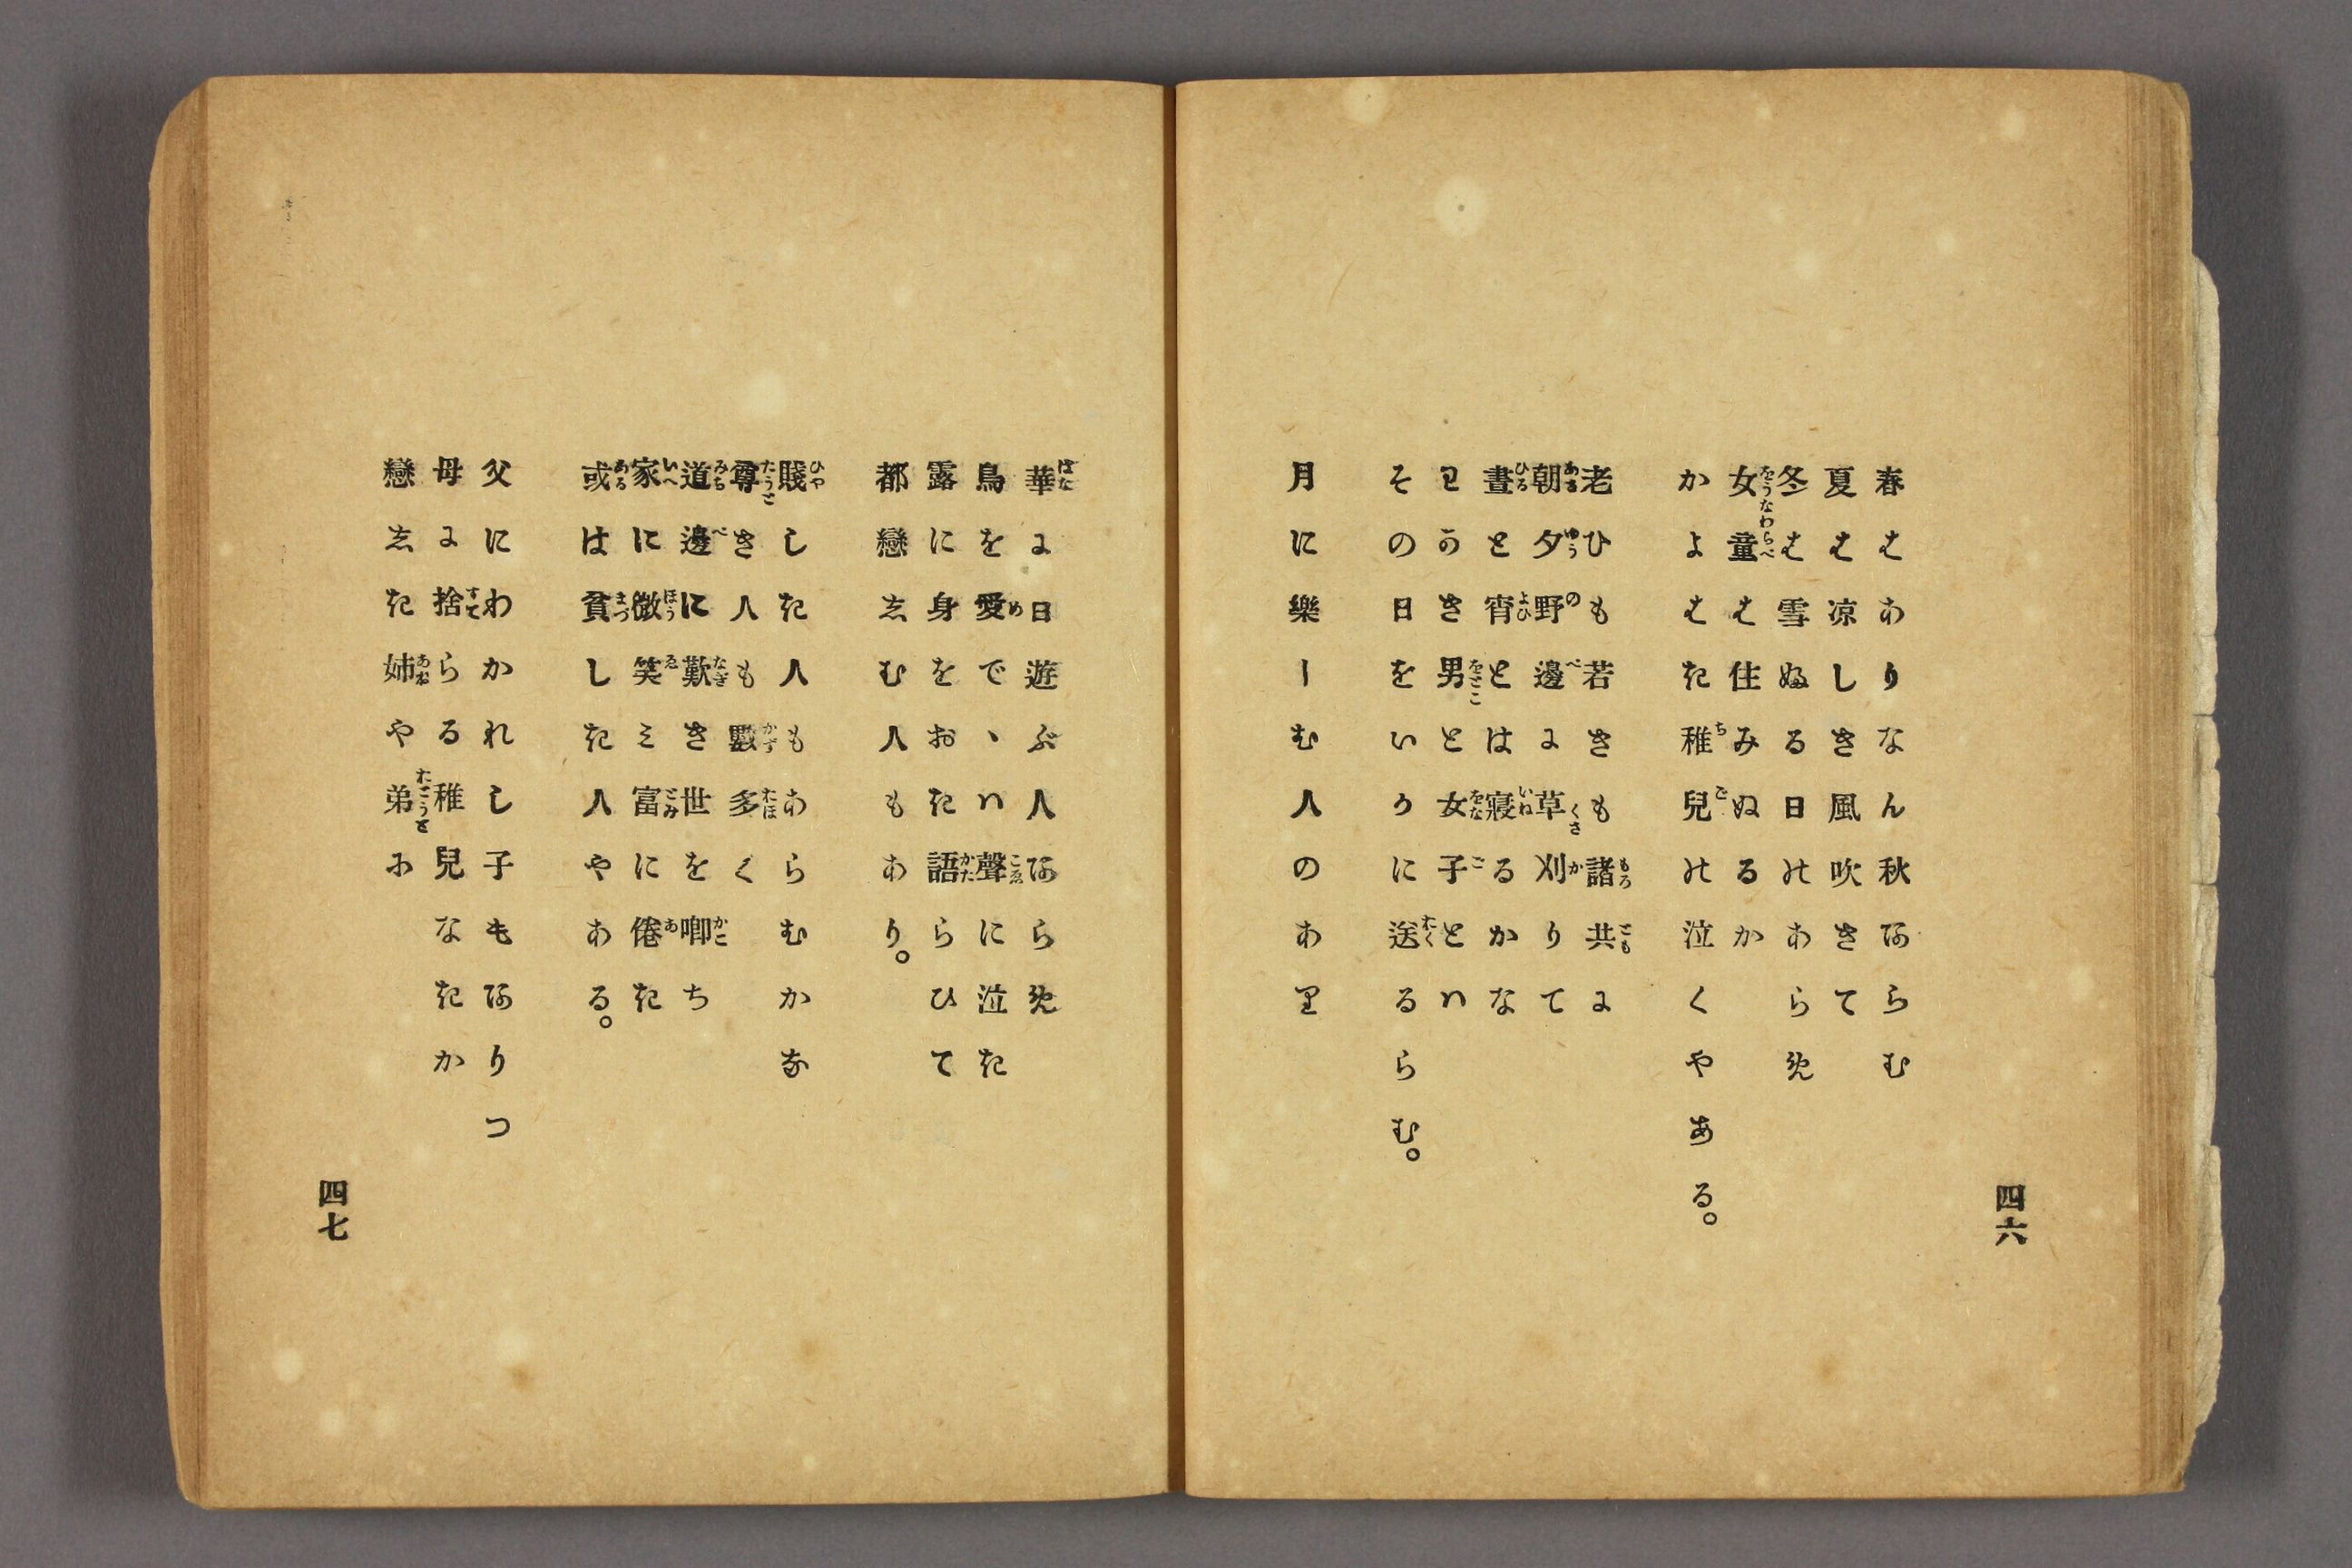 春はありなん秋あらむ
夏は涼しき風吹きて
冬は雪ぬる日のあらめ
女童は住みぬるか
かよはき稚兒の泣くやある。
老ひも若きも諸共に
朝夕野邊に草刈りて
晝と宵とは寢るかな
わかき男と女子とは
その日をいかに送るらむ。
月に樂しむ人のあり
四六
華に日遊ぶ人あらめ
鳥を愛で、は聲に泣き
露に身をおき語らひて
都戀しむ人もあり。
賤しき人もあらむかな
尊き人も數多く
道邊に歎き世を喞ち
家に微笑ミ富に倦き
或は貧しき人やある。
父にわかれし子もありつ
母に捨らる稚兒なきか
戀しき姉や弟に
四七